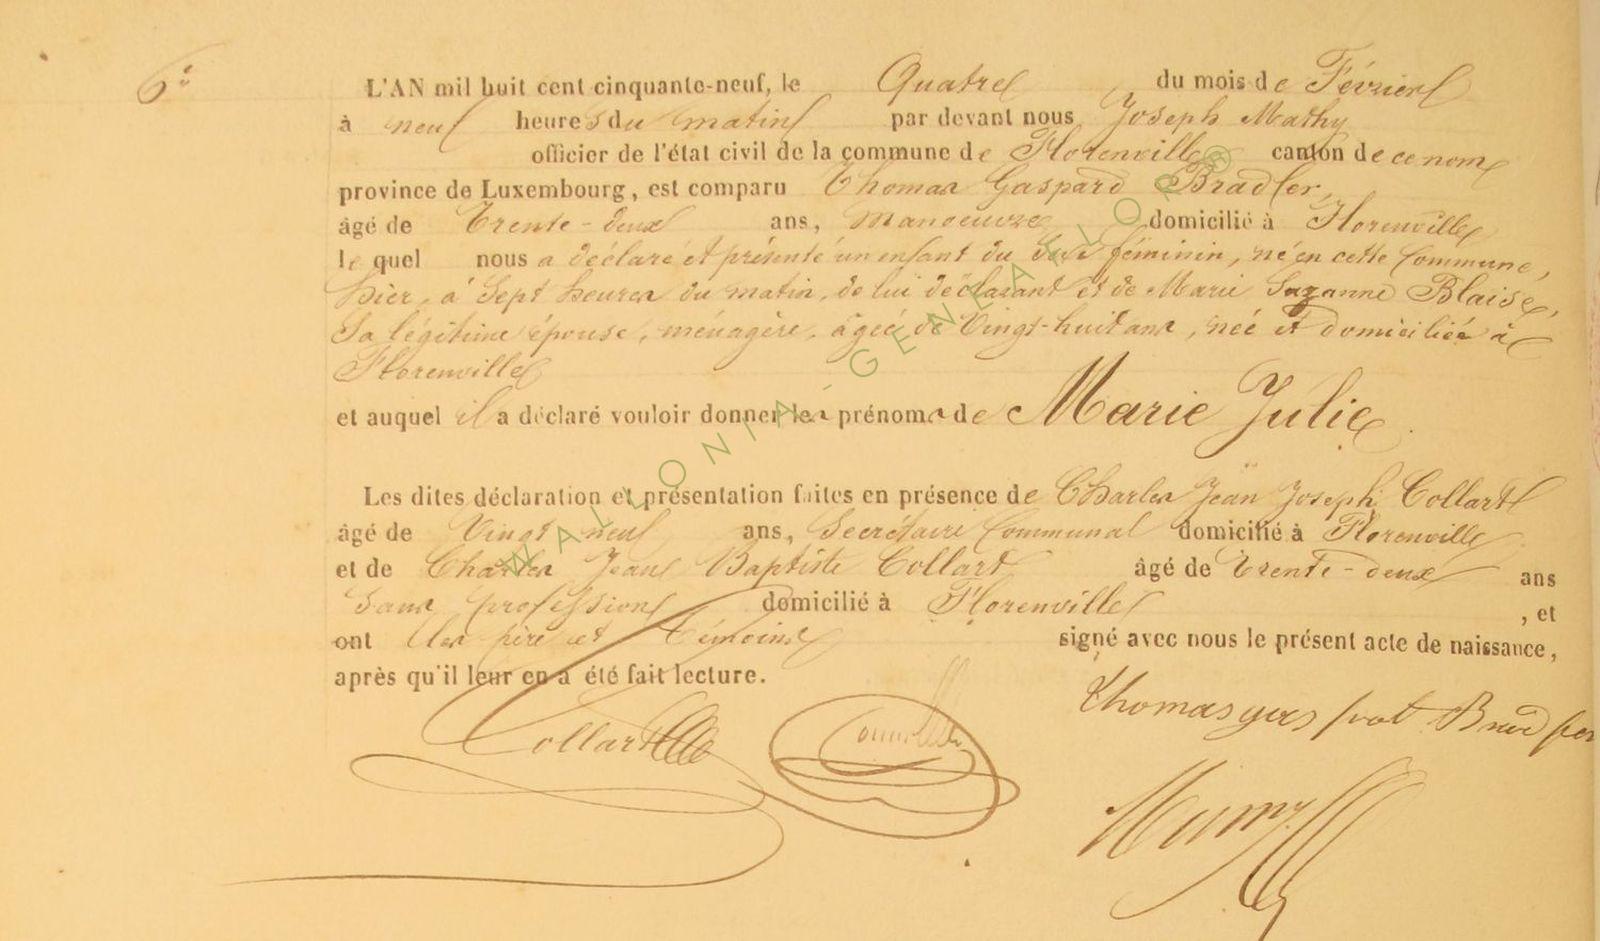 6.e
L'AN mil huit cent cinquante-neuf, le Quatre du mois de Février
à neuf heures du matin par devant nous Joseph Mathy
officier de l'état civil de la commune de Florenville canton de ce nom
province de Luxembourg, est comparu Thomas Gaspard Bradler,
âgé de Trente-deux ans, manoeuvre domicilié à Florenville
lequel nous a déclaré et présenté un enfant du sexe féminin, né en cette Commune,
hier, à Sept heures du matin, de lui déclarant et de Marie Suzanne Blaise,
Sa légitime épouse, ménagère, âgée de Vingt-huit ans, née et domiciliée à
Florenville
et auquel il a déclaré vouloir donner les prénoms de Marie Julie
Les dites déclaration et présentation faites en présence de Charles Jean Joseph Collart
âgé de Vingt neuf ans, Secrétaire Communal domicilié à Florenville
et de Charles Jean Baptiste Collart âgé de Trente-deux ans
Sans profession domicilié à Florenville , et
ont les père et témoins signé avec nous le présent acte de naissance,
après qu'il leur en a été fait lecture.
Collart
WALLONIA-GENEAFLOR®